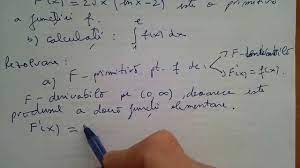 F(x) = 2√x (ln x - 2) este o primitivă
a funcției f.
b) calculați: ∫ f(x) dx
e
Rezolvare:
a) F - primitivă pt. f dc. F - derivabilă
F'(x) = f(x).
F - derivabilă pe (0, ∞), deoarece este
produsul a două funcții elementare.
F'(x) =